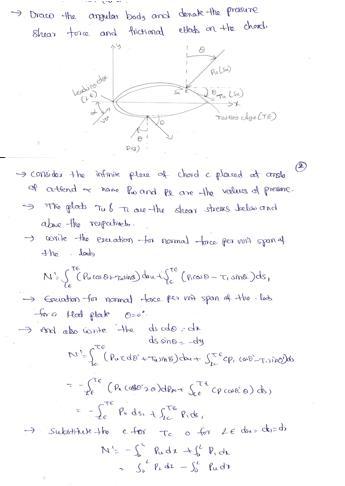 → Draw the angular body and denote the pressure
shear force and frictional effects on the chord.
y
θ
Pu(Su)
Leading edge
(LE)
α
V∞
Su
θ
Tu (Su)
x
Trailing edge (TE)
θ
②
→ Consider the infinite plane of chord c placed at angle
of attend α have Pu and Pl are the values of pressure.
→ The plats Tu & Tl are the shear stresses below and
above the respectively.
→ write the equation for normal force per unit span of
the body
N' = ∫ᴸᴱᵀᴱ (Pu cosθ + Tu sinθ) dsu + ∫ᴸᴱᵀᴱ (Pl cosθ - Tl sinθ) dsl
→ Equation for normal force per unit span of the
for a flat plate θ=0°
→ And also write the ds cosθ = dx
ds sinθ = -dy
= -∫ Pu dsu + ∫ Pl dsl
→ Substitute the c for TE 0 for LE dsu = dsl = dx
N' = -∫₀ᶜ Pu dx + ∫₀ᶜ Pl dx
= ∫₀ᶜ Pl dx - ∫₀ᶜ Pu dx